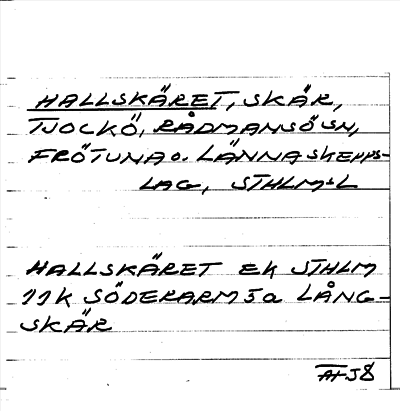 HALLSKÄRET, SKÄR,
TJOCKÖ, RÅDMANSÖ SN,
FRÖTUNA O. LÄNNA SKEPPS-
LAG, STHLMS L
HALLSKÄRET EK STHLM
11K SÖDERARM 5a LÅNG-
SKÄR